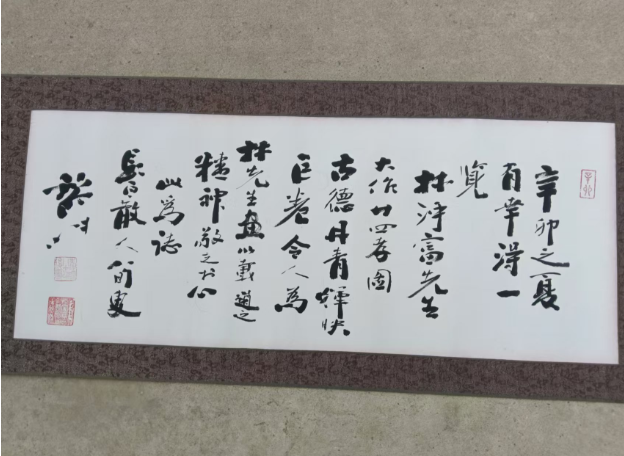 辛卯之夏
有幸得一
览
林浮富先生
大作廿四孝图
古德丹青辉映
巨卷令人为
林先生画以载道之
精神敬之书心
此为志
散人